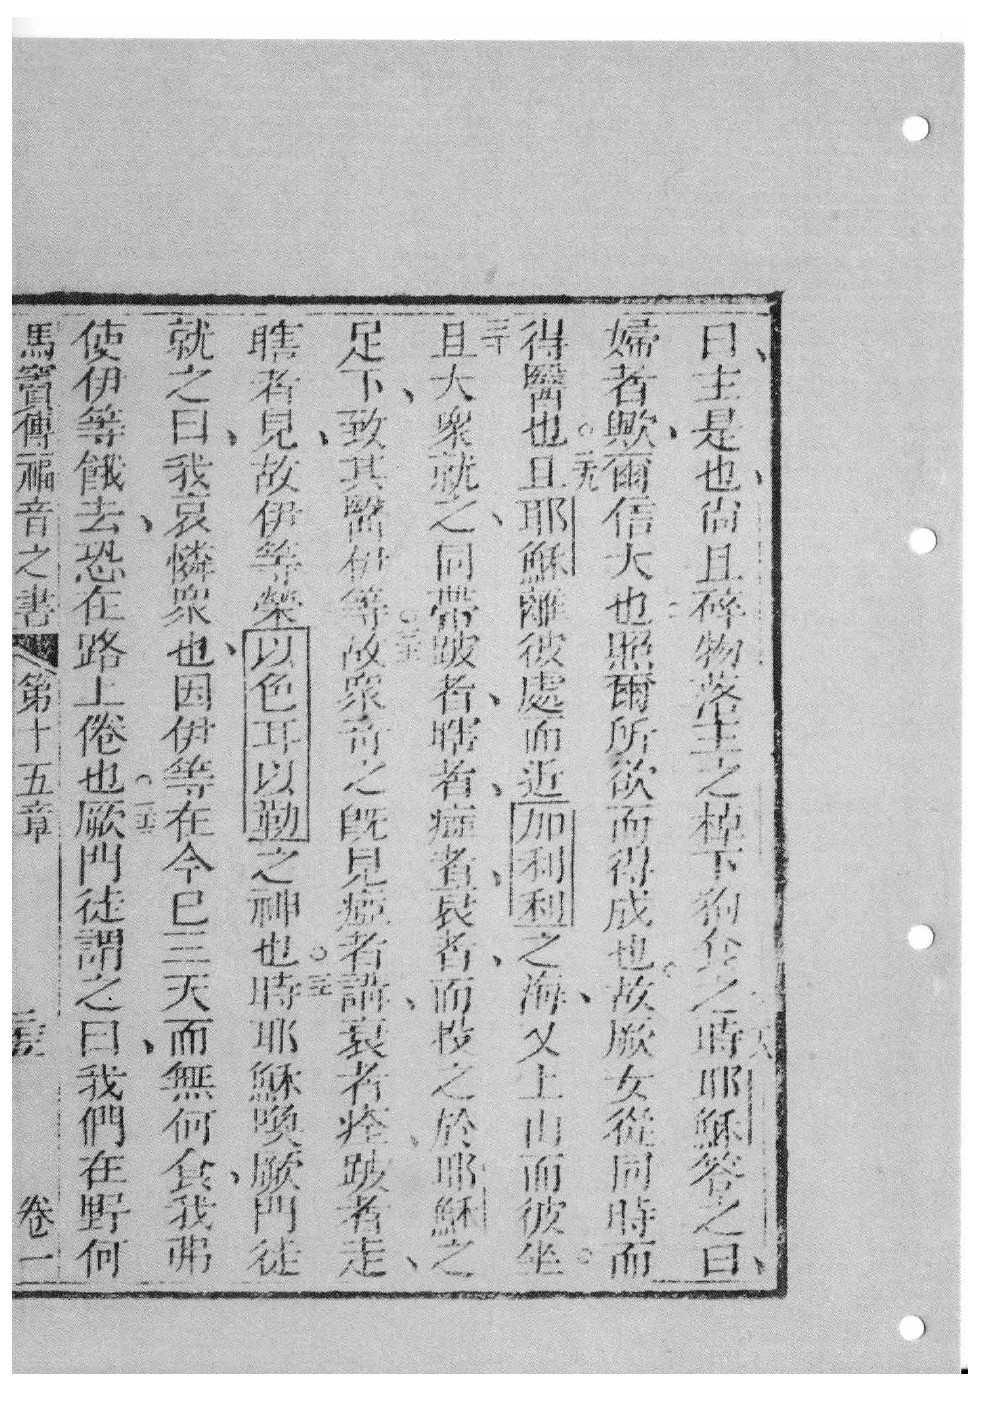 曰主是也尙且碎物落主之棹下狗食之時耶穌答之曰
婦者歟爾信大也照爾所欲而得成也故厥女從同時而
得醫也且耶穌離彼處而近加利利之海又上山而彼坐
且大衆就之同帶跛者瞎者瘂者衰者而投之於耶穌之
足下致其醫伊等故衆奇之旣見瘂者講衰者痊跛者走
瞎者見故伊等榮以色耳以勒之神也時耶穌喚厥門徒
就之曰我哀憐衆也因伊等在今已三天而無何食我弗
使伊等餓去恐在路上倦也厥門徒謂之曰我們在野何
馬竇傳福音之書 第十五章 卷一
二八
二九
三十
三一
三二
三三